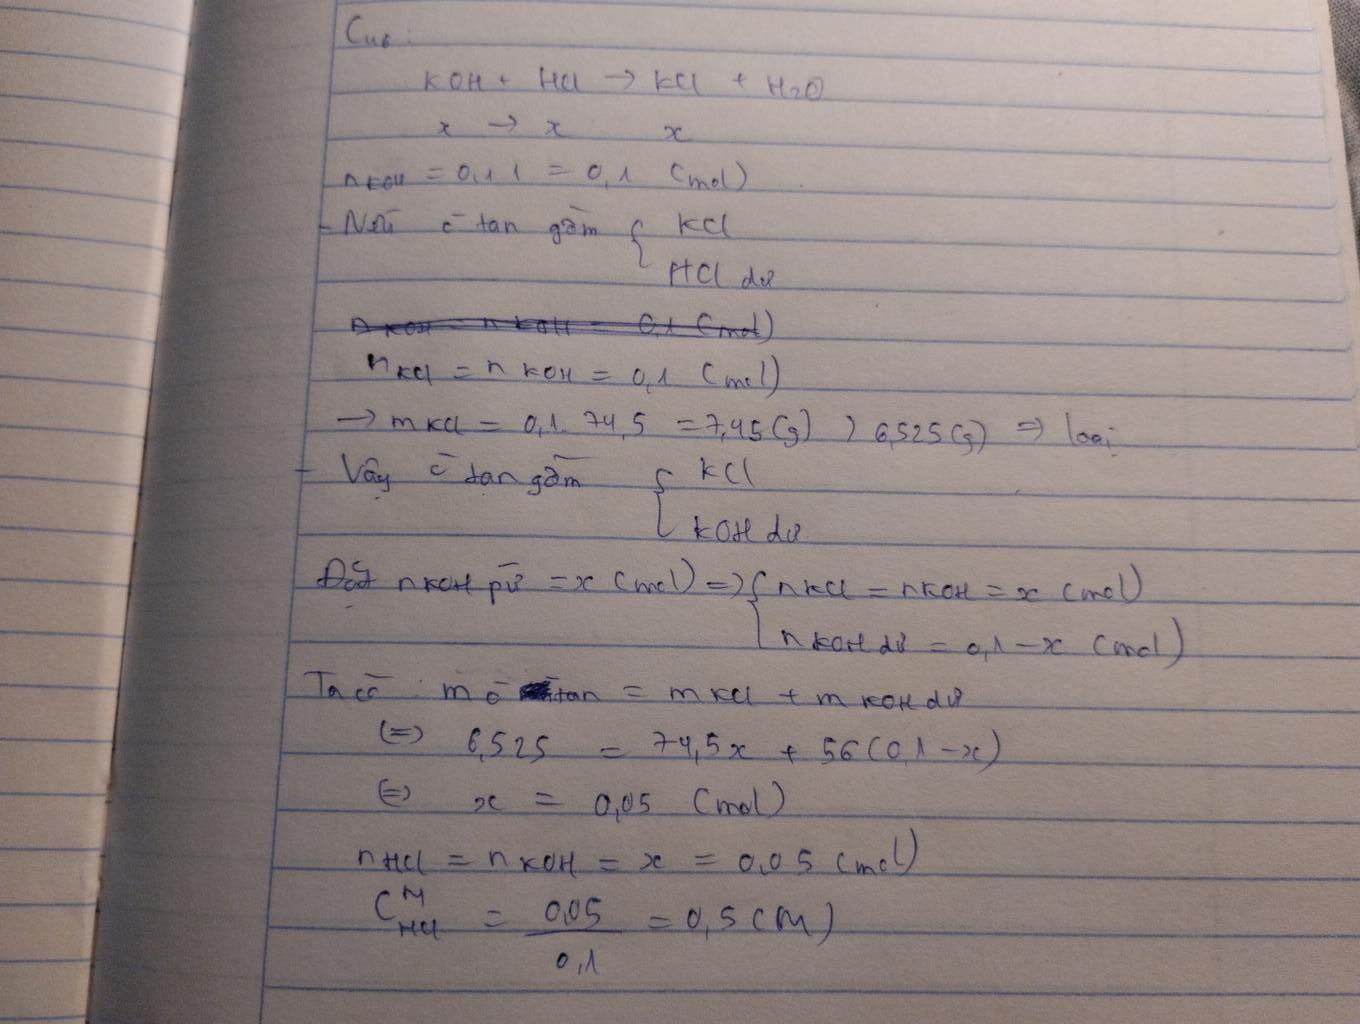 Câu:
KOH + HCl → KCl + H₂O
x → x x
nKOH = 0,1.1 = 0,1 (mol)
- Nếu c̄ tan gồm { KCl
HCl dư
n KOH = n KOH = 0,1 (mol)
nKCl = n KOH = 0,1 (mol)
→ m KCl = 0,1.74,5 = 7,45(g) > 6,525(g) => loại
- Vậy c̄ tan gồm { KCl
KOH dư
Đặt nKOH pứ = x (mol) => { nKCl = nKOH = x (mol)
n KOH dư = 0,1 - x (mol)
Ta có : m c̄ tan = m KCl + m KOH dư
(=) 6,525 = 74,5x + 56(0,1 - x)
(=) x = 0,05 (mol)
nHCl = n KOH = x = 0,05 (mol)
C M HCl = 0,05 / 0,1 = 0,5 (M)